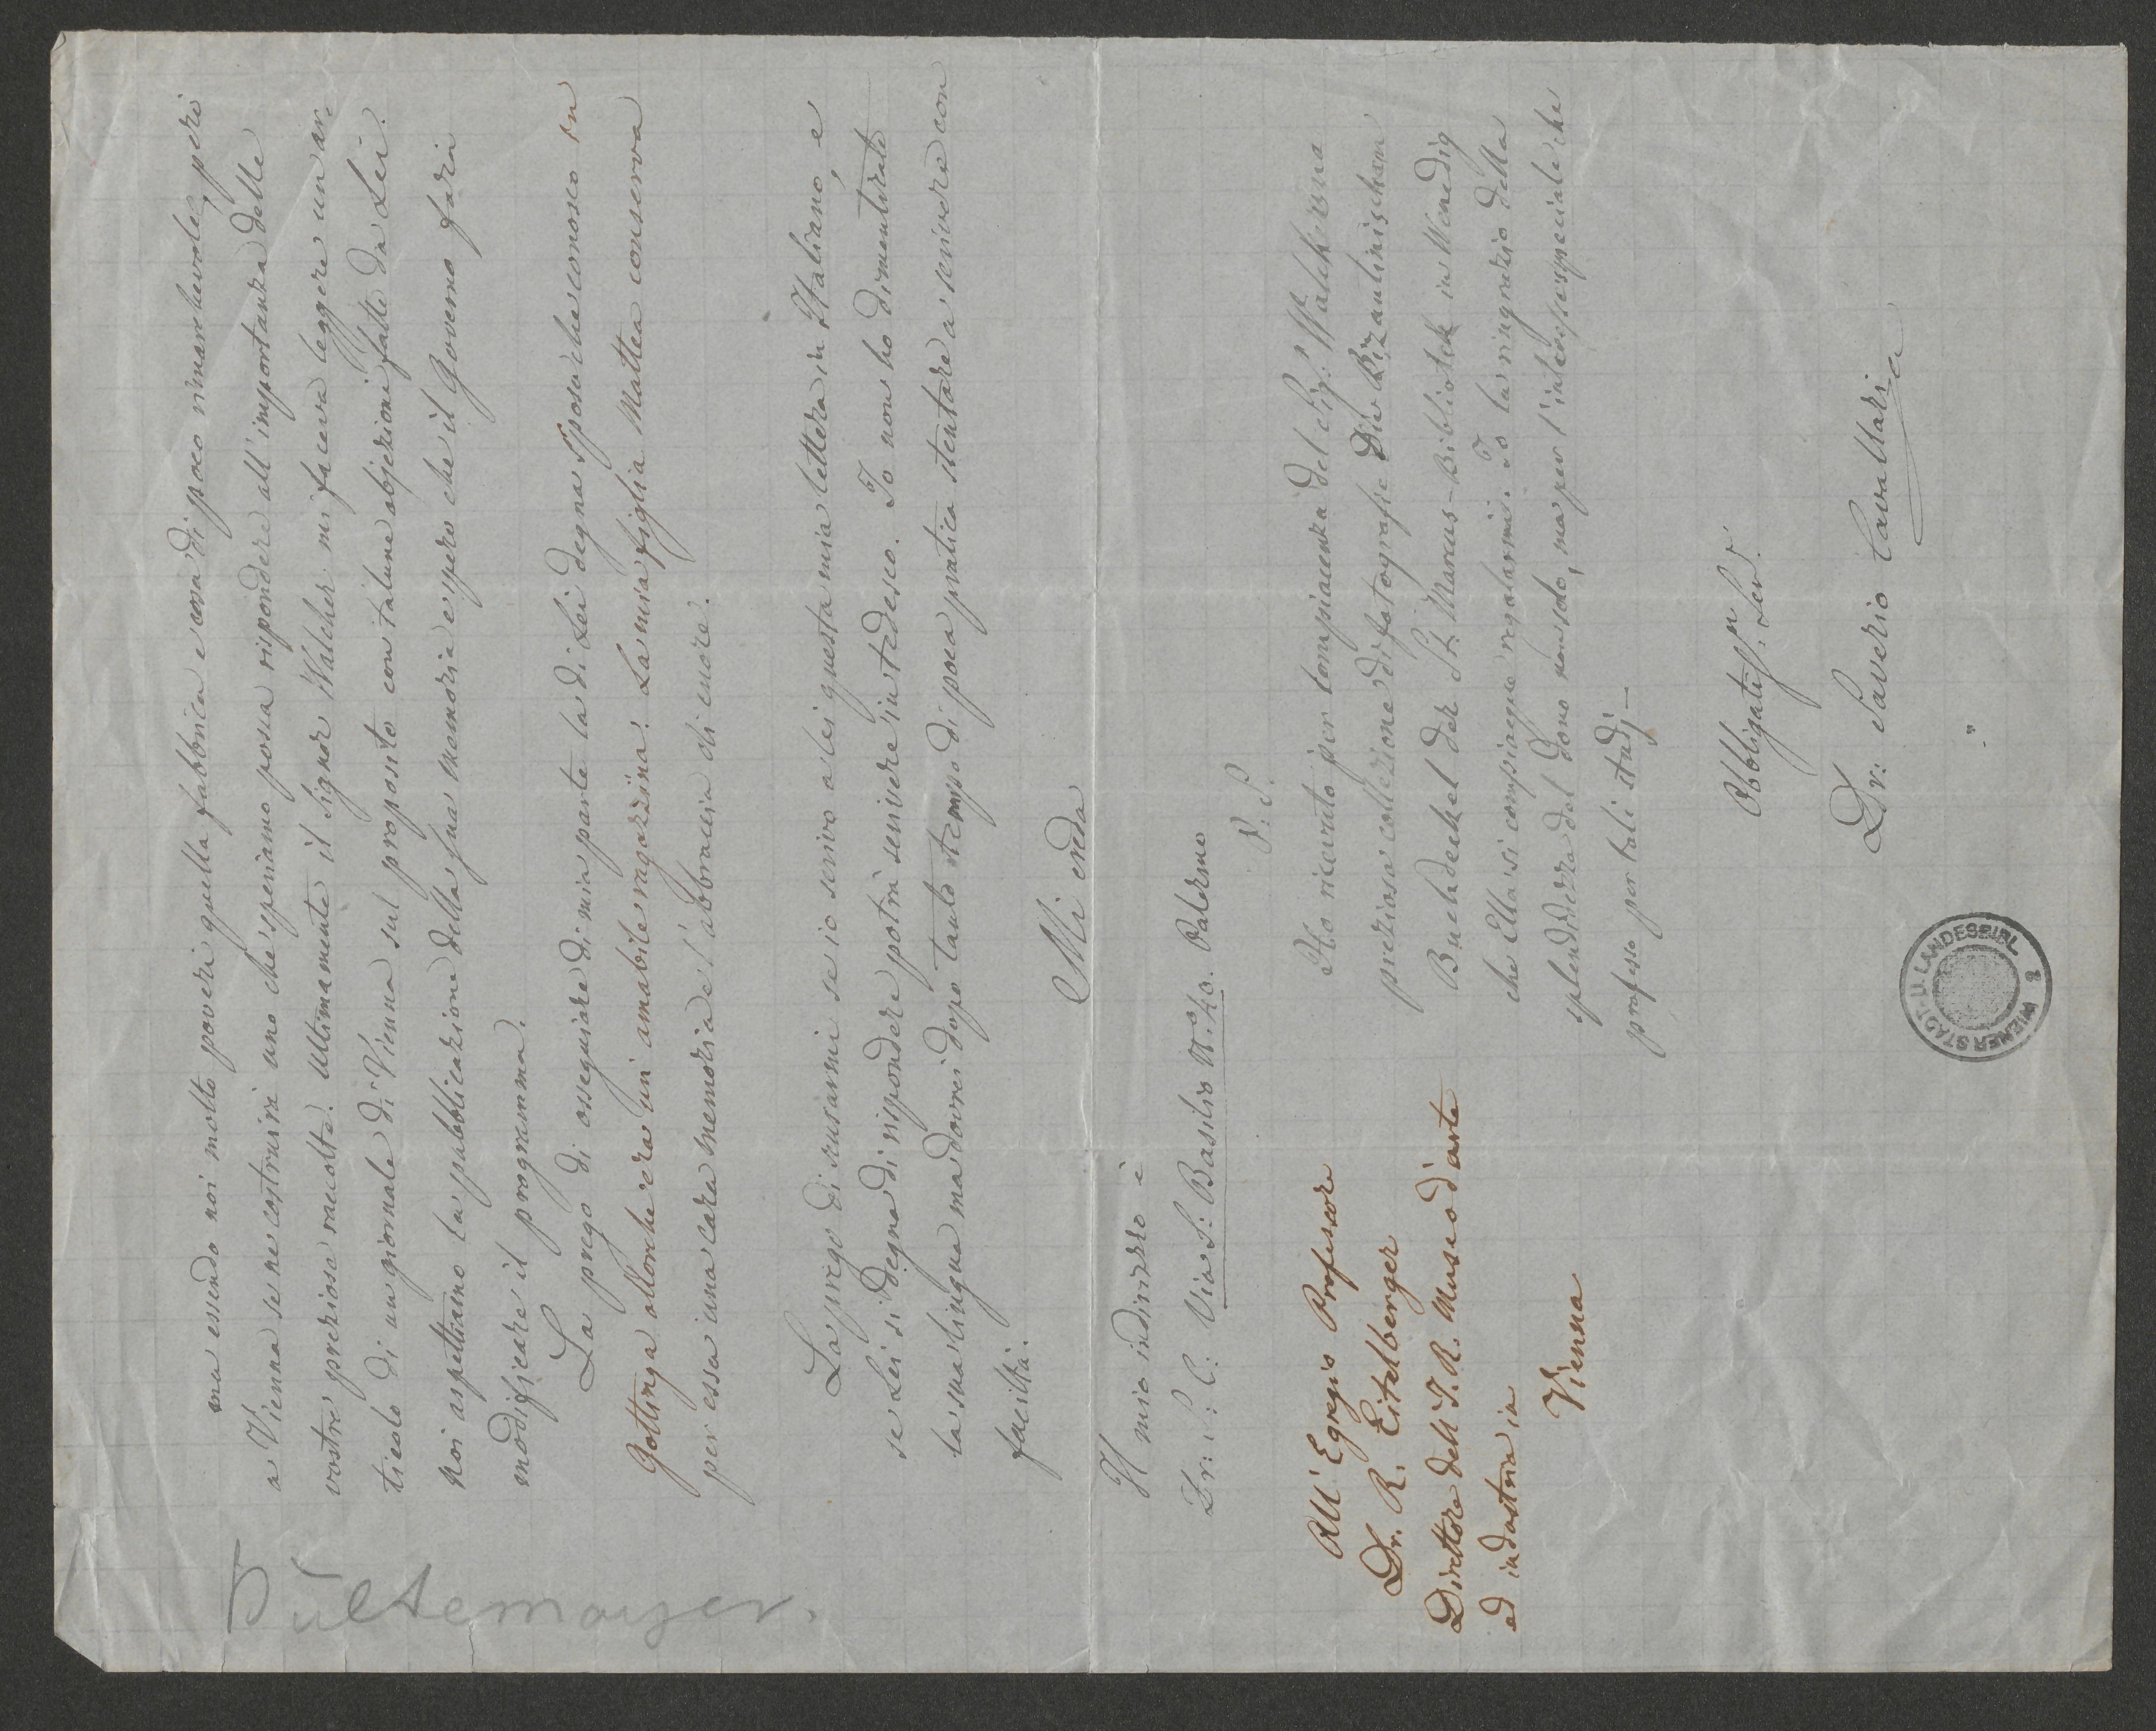 ma essendo noi molto poveri quella fabbrica è cosa di poco rimarchevole, però
a Vienna se ne costruirà uno che speriamo possa rispondere all'importanza delle
vostre preziose raccolte. Ultimamente il Signor Walcher mi faceva leggere un ar-
ticolo di un giornale di Vienna sul proposito con talune objezioni fatte da Lei.
Noi aspettiamo la pubblicazione della sua memoria e spero che il Governo farà
modificare il programma.
La prego di ossequiare di mia parte la di Lei degna sposa che conosco in
Gottinga allorche era un amabile ragazzina. La mia figlia Mattea conserva
per essa una cara memoria e l'abbraccia di cuore.
La prego di scusarmi se io scrivo a lei questa mia lettera in Italiano, e
se Lei si degna di rispondere potrà scrivere in tedesco. Io non ho dimenticato
la sua lingua ma dovrei dopo tanto tempo di poca pratica stentare a scrivere con
facilità.
Mi creda
Il mio indirizzo è
Dr: S: C: Via S: Basilio N.º 40. Palermo
P. S.
Ho ricevuto per compiacenza del Sig.r Walcher una
preziosa collezione di fotografie Die Bizantinischen
Buchdeckel der St. Marcus-Bibliotek in Wenedig
che Ella si compiacque regalarmi. Io la ringrazio della
splendidezza del dono non solo, ma per l'interesse speciale che
professo per tali studj —
Obbligatis.mo Ser.r
Dr: Saverio Cavallari
All' Egregio Professore
Dr. R. Eitelberger
Direttore dell' I. R. Museo d'arte
ed industria in
Vienna
WIENER STADT- U. LANDESBIBL.